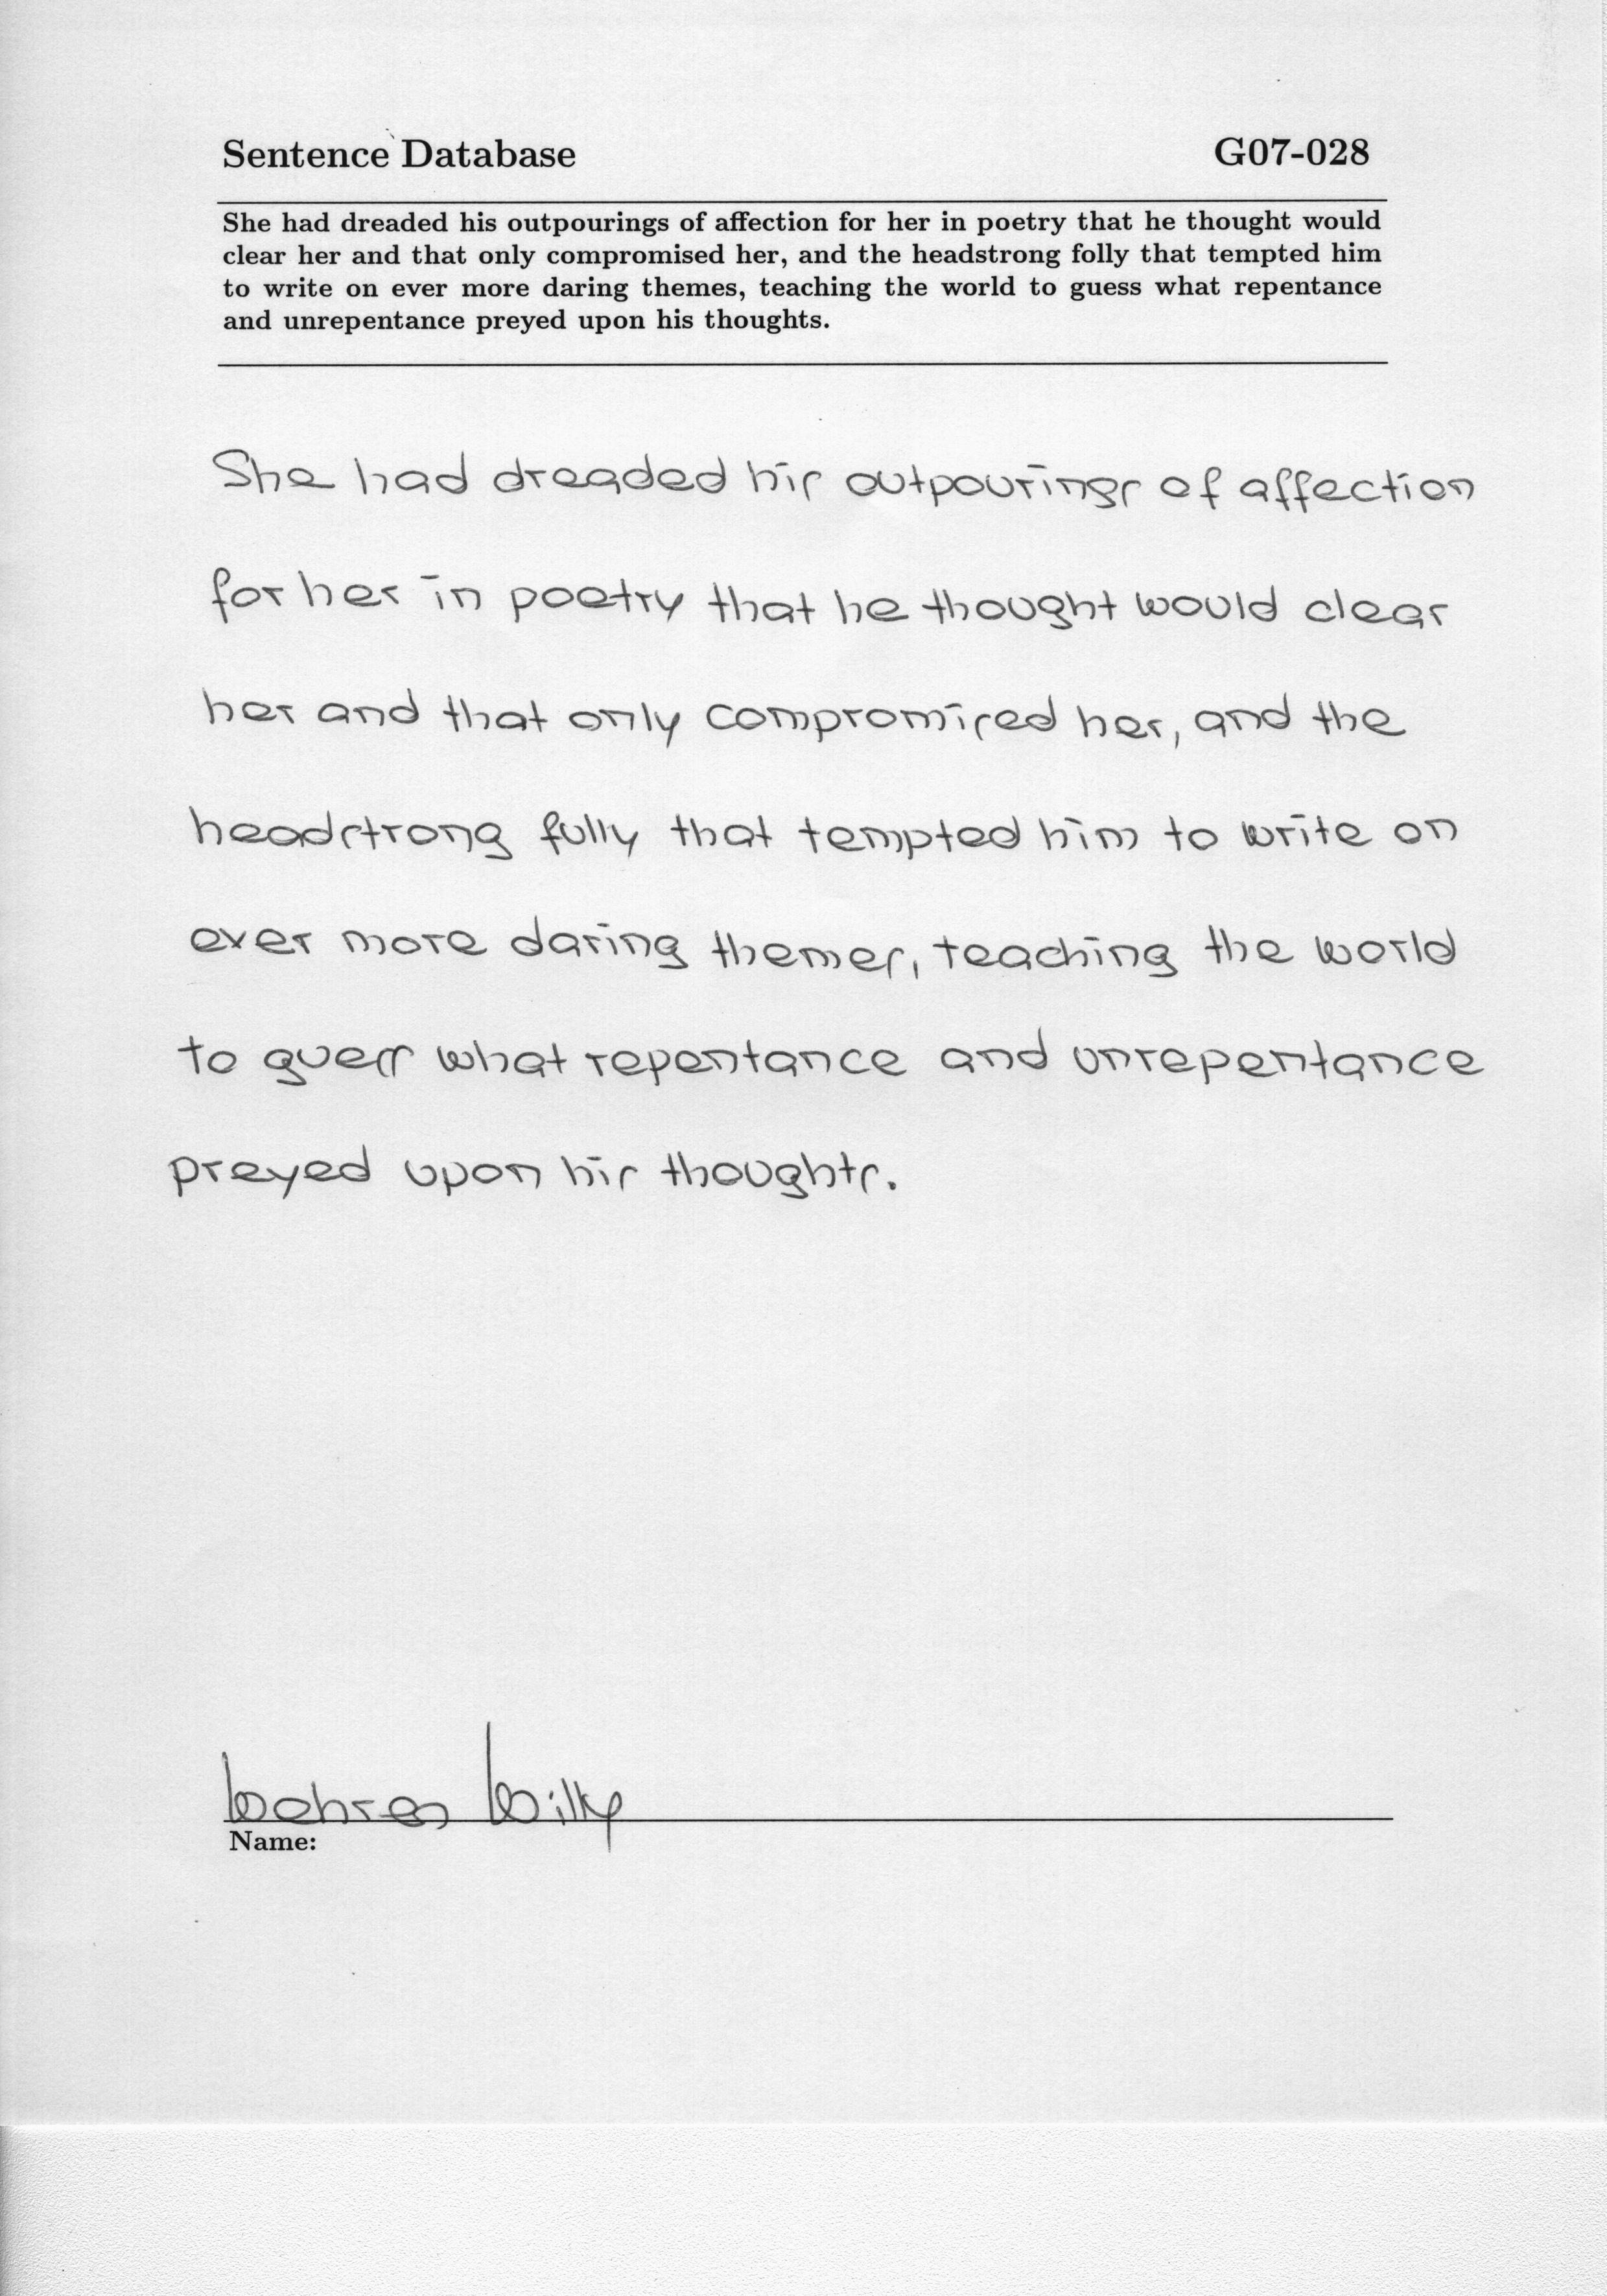 Sentence Database G07-028
She had dreaded his outpourings of affection for her in poetry that he thought would
clear her and that only compromised her, and the headstrong folly that tempted him
to write on ever more daring themes, teaching the world to guess what repentance
and unrepentance preyed upon his thoughts.
She had dreaded his outpourings of affection
for her in poetry that he thought would clear
her and that only compromised her, and the
headstrong fully that tempted him to write on
ever more daring themes, teaching the world
to guess what repentance and unrepentance
preyed upon his thoughts.
Willy
Name: